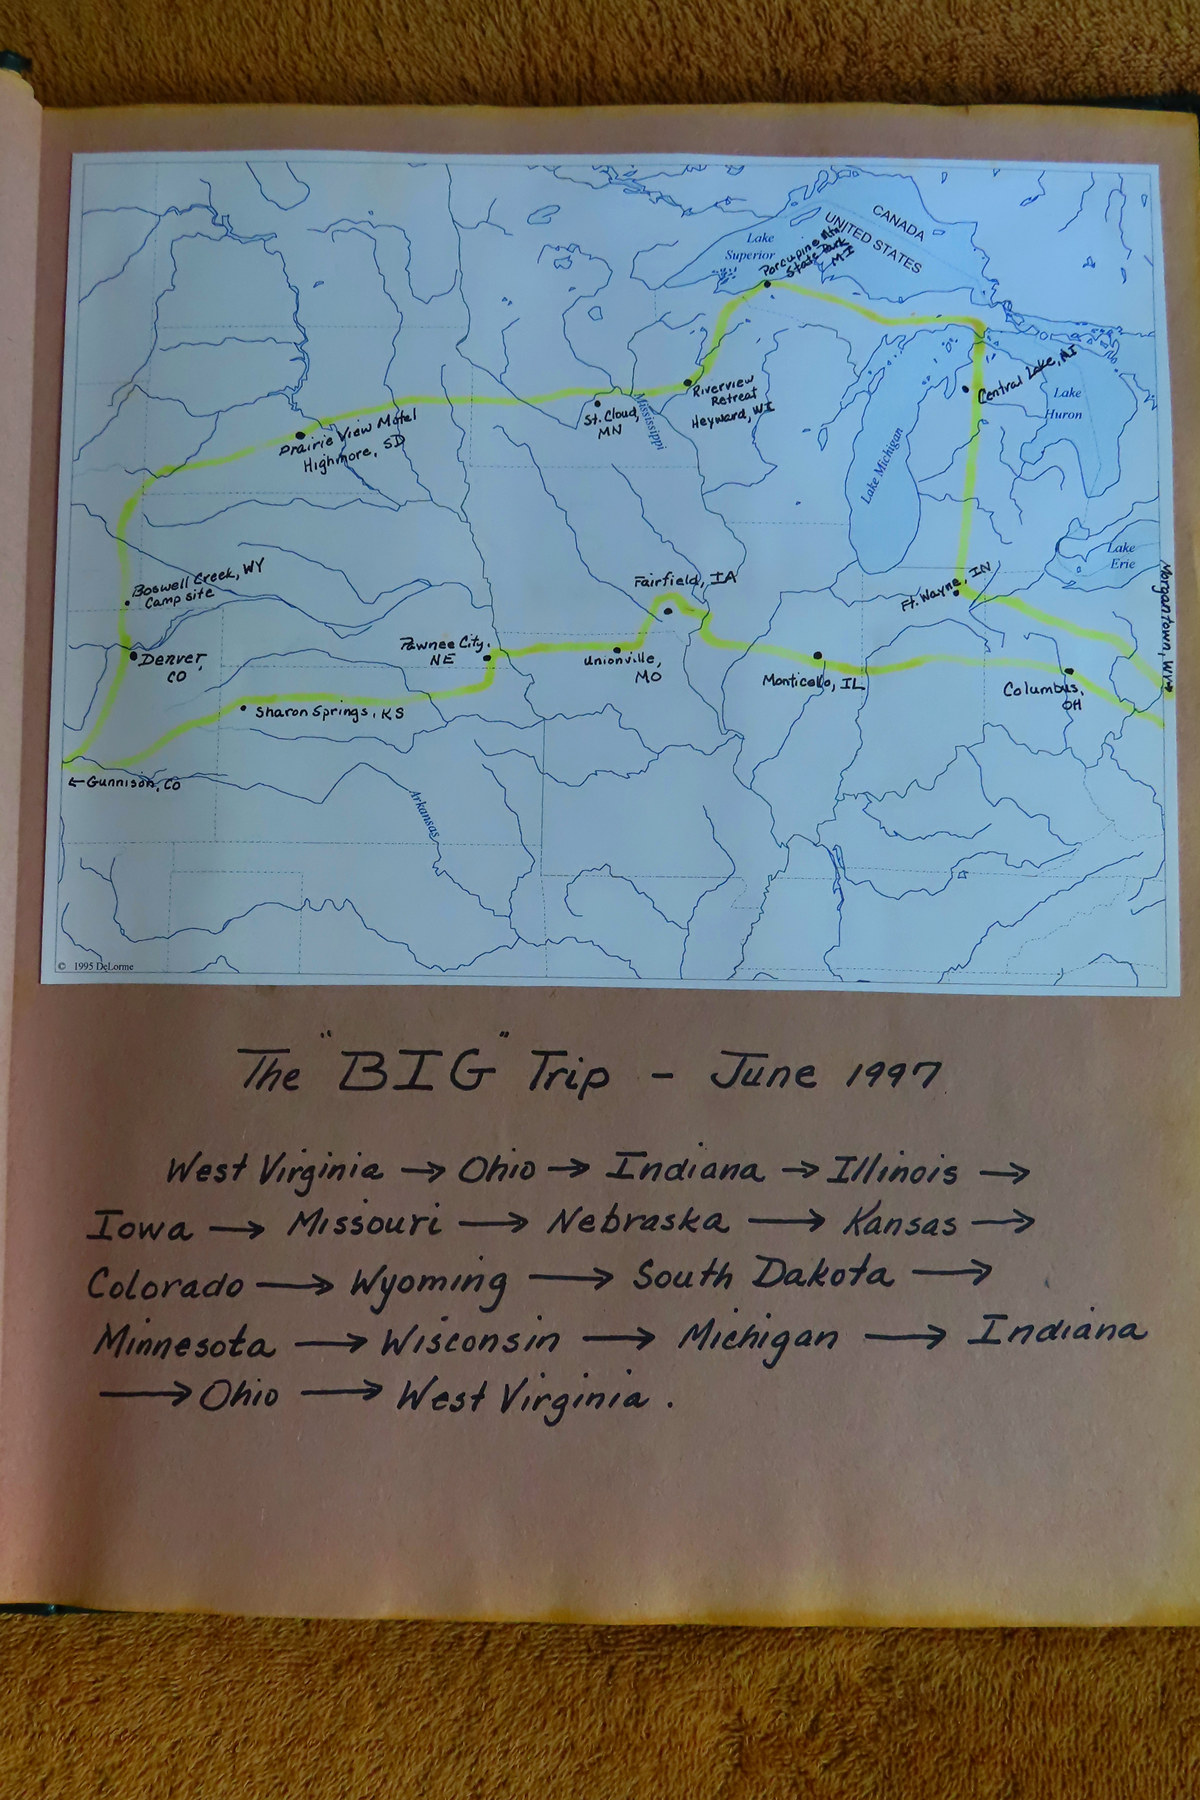 CANADA
UNITED STATES
Lake
Superior
Porcupine Mtn
State Park
MI
Central Lake, MI
Lake
Huron
Riverview
Retreat
Heyward, WI
Mississippi
St. Cloud,
MN
Prairie View Motel
Highmore, SD
Lake Michigan
Lake
Erie
Boswell Creek, WY
Camp site
Fairfield, IA
Ft. Wayne, IN
Morgantown, WV→
Denver,
CO
Pawnee City,
NE
Unionville,
MO
Monticello, IL
Columbus,
OH
Sharon Springs, KS
← Gunnison, CO
Arkansas
© 1995 DeLorme
The "BIG" Trip - June 1997
West Virginia → Ohio → Indiana → Illinois →
Iowa → Missouri → Nebraska → Kansas →
Colorado → Wyoming → South Dakota →
Minnesota → Wisconsin → Michigan → Indiana
→ Ohio → West Virginia.